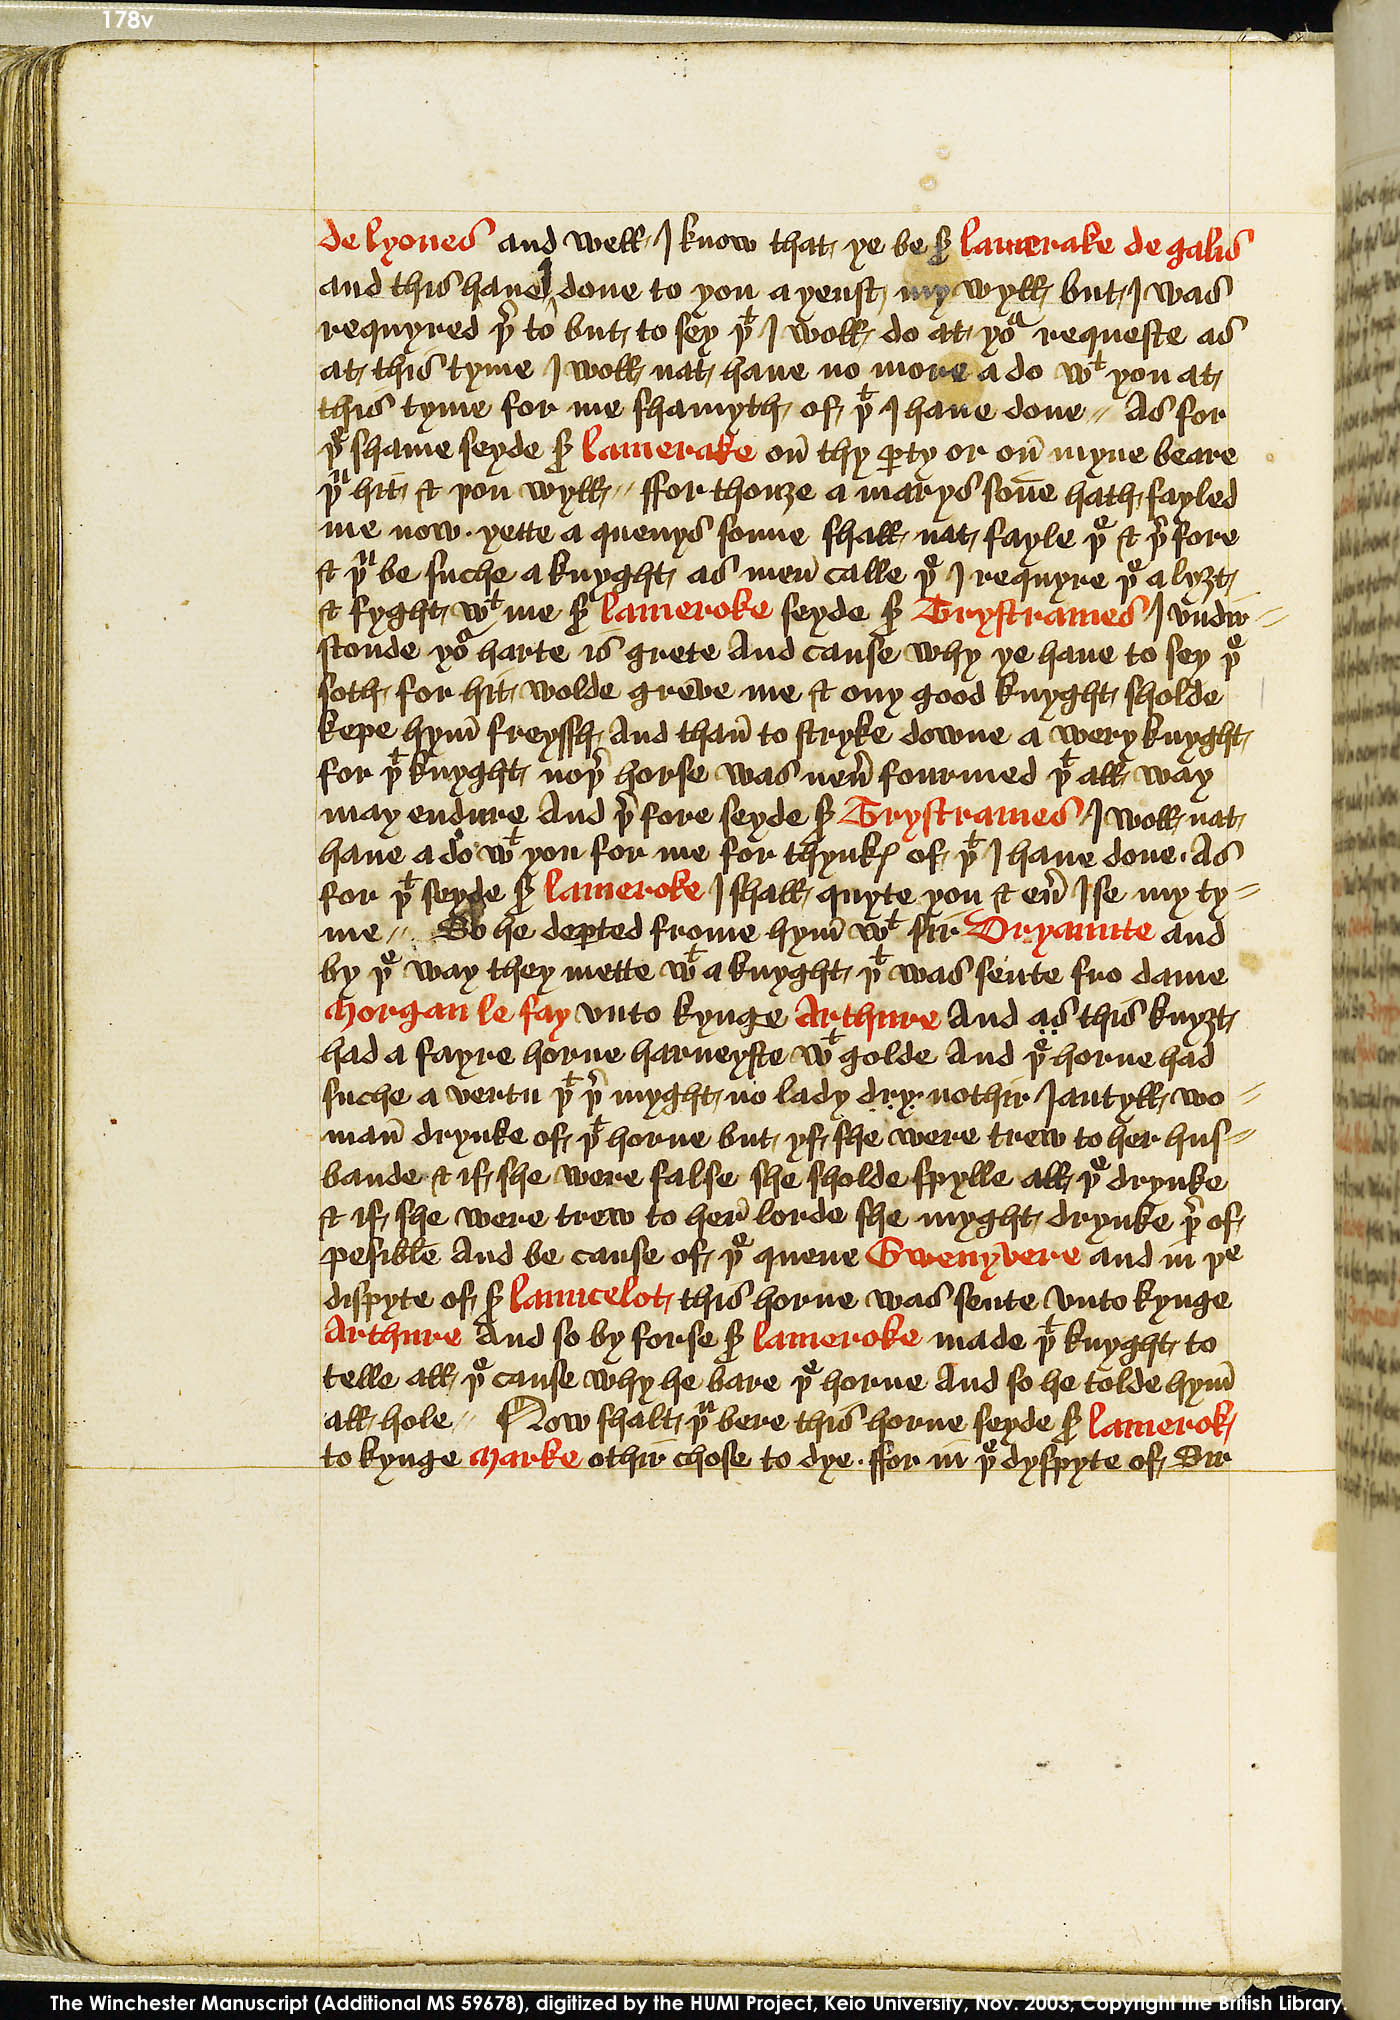 178v
de lyones and well I know that ye be sͬ lamerake de galis
and this haue I done to you a yenst my wyll but I was
requyred þͬ to but to sey þͭ I woll do at yoͬ requeste as
at this tyme I woll nat haue no more a do wͭ you at
this tyme for me shamyth of þͭ I haue done // As for
þͤ shame seyde sͬ lamerake on̄ thy ꝑty or on̄ myne beare
þᵘ hit & þou wyll // ffor thouȝe a marys son̄e hath fayled
me now · yette a quenys sonne shall nat fayle þͤ & þͬ fore
& þᵘ be suche a knyght as men̄ calle þͤ I requyre þͤ a lyȝt
& fyght wͭ me sͬ lameroke seyde sͬ Trystrames I vndir //
stonde yoͬ harte is grete And cause why ye haue to sey þͤ
soth for hit wolde greve me & ony good knyght sholde
kepe hym̄ freyssh And than̄ to stryke downe a wery knyght
for þͭ knyght noþͬ horse was neu̾ fourmed þͭ all way
may endure And þͬ fore seyde sͬ Trystrames I woll nat
haue a do wͭ you for me for thynkꝭ of þͭ I haue done · As
for þͭ seyde sͬ lameroke I shall quyte you & eu̾ I se my ty //
me // So he deꝑted frome hym̄ wͭ sir Dryaunte and
by þͤ way they mette wͭ a knyght þͭ was sente fro dame
Morgan le fay vnto kynge Arthure And as this knyȝt
had a fayre horne harneyste wͭ golde And þͤ horne had
suche a vertu þͭ þͬ myght no lady dry nothir Iantyll wo //
man̄ drynke of þͭ horne but yf she were trew to her hus //
bande & if she were false she sholde spylle all þͤ drynke
& if she were trew to her̄ lorde she myght drynke þͬ of
pesible And be cause of þͤ quene Gwenyvere and in þͤ
dispyte of sͬ launcelot this horne was sente vnto kynge
Arthure And so by forse sͬ lameroke made þͭ knyght to
telle all þͤ cause why he bare þͤ horne And so he tolde hym̄
all hole // Now shalt þᵘ bere this horne seyde sͬ lamerok
to kynge Marke othir chose to dye · ffor in þͤ dyspyte of Sir
The Winchester Manuscript (Additional MS 59678), digitized by the HUMI Project, Keio University, Nov. 2003; Copyright the British Library.